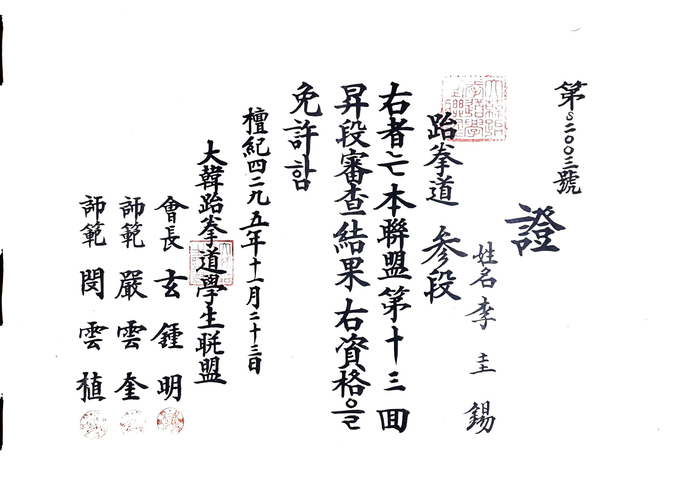 第S二〇〇三號
證
姓名 李圭錫
跆拳道 參段
右者는 本聯盟第十三回
昇段審査結果右資格을
免許함
檀紀四二九五年十一月二十三日
大韓跆拳道學生聯盟
會長 玄鍾明
師範 嚴雲奎
師範 閔雲植